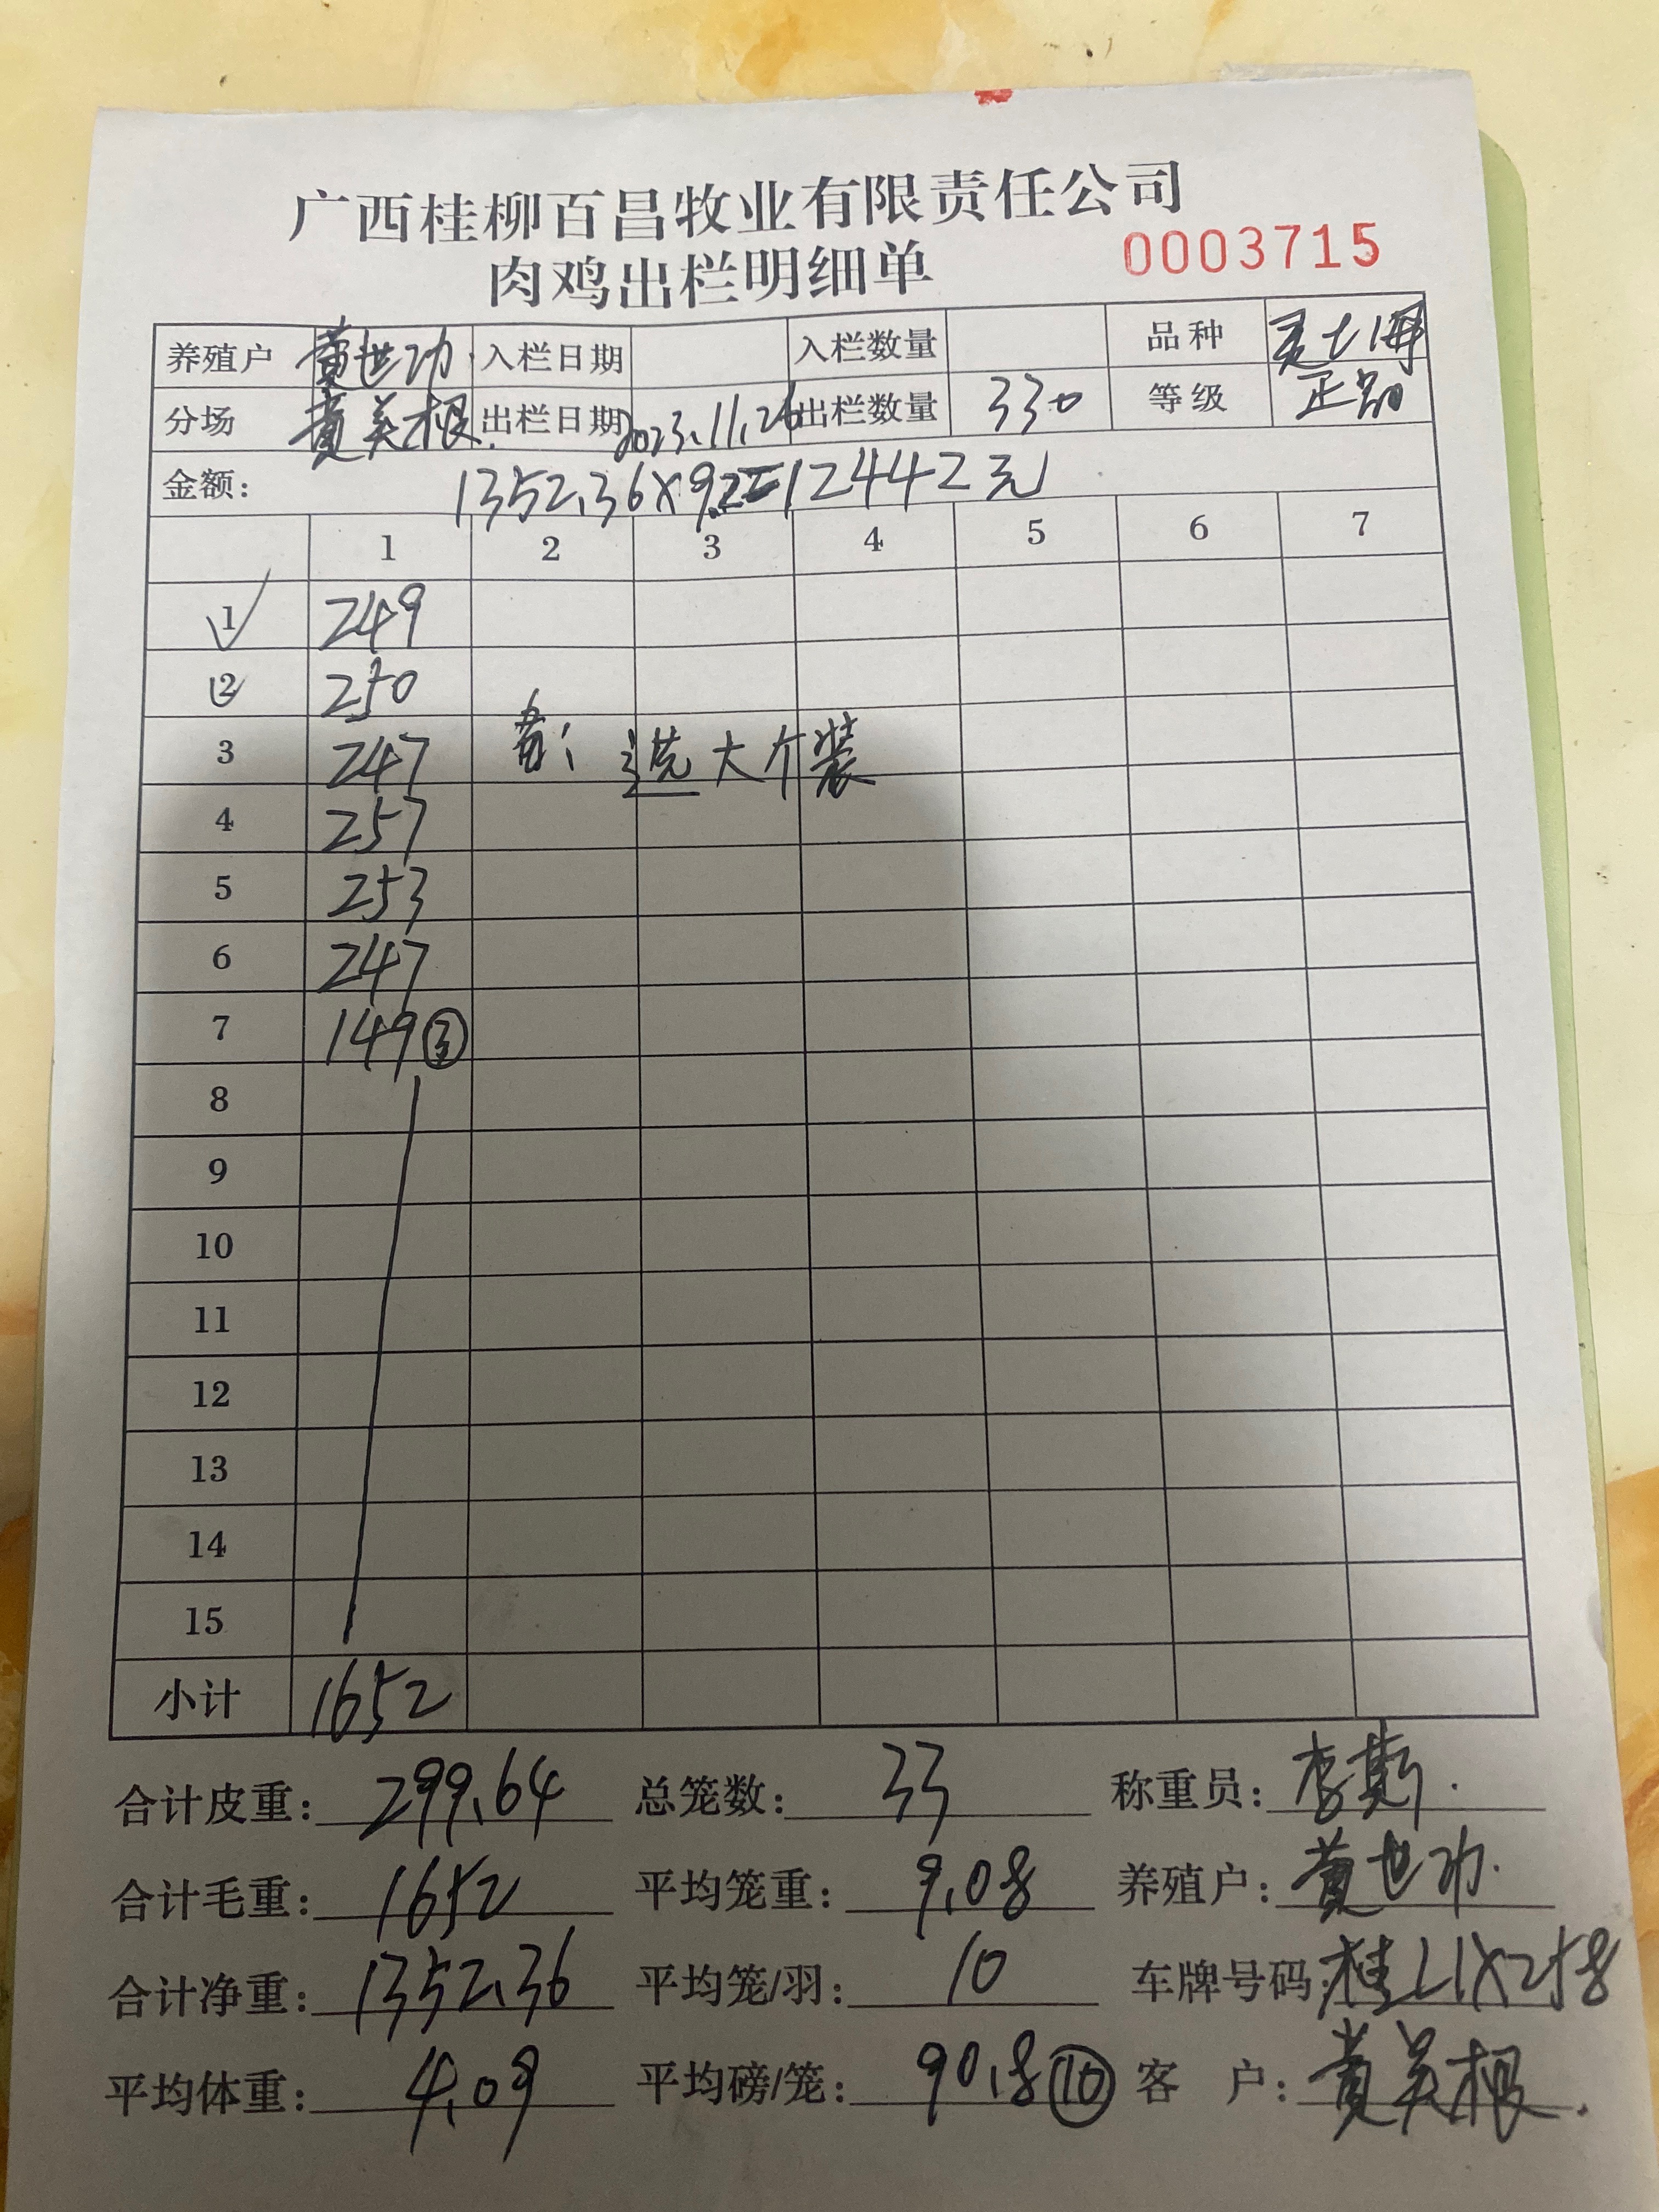 广西桂柳百昌牧业有限责任公司
肉鸡出栏明细单 0003715
养殖户 黄世功 入栏日期 入栏数量 品种
分场 黄美根 出栏日期 2023.11.26 出栏数量 330 等级 正品
金额: 1352.36×9.2=12442元
1 2 3 4 5 6 7
1 249
2 250
3 247 黄: 选大个装
4 257
5 253
6 247
7 149 ③
8
9
10
11
12
13
14
15
小计 1652
合计皮重: 299.64 总笼数: 33 称重员: 李斯
合计毛重: 1652 平均笼重: 9.08 养殖户: 黄世功
合计净重: 1352.36 平均笼/羽: 10 车牌号码: 桂L1X258
平均体重: 4.09 平均磅/笼: 90.8 ⑩ 客户: 黄美根